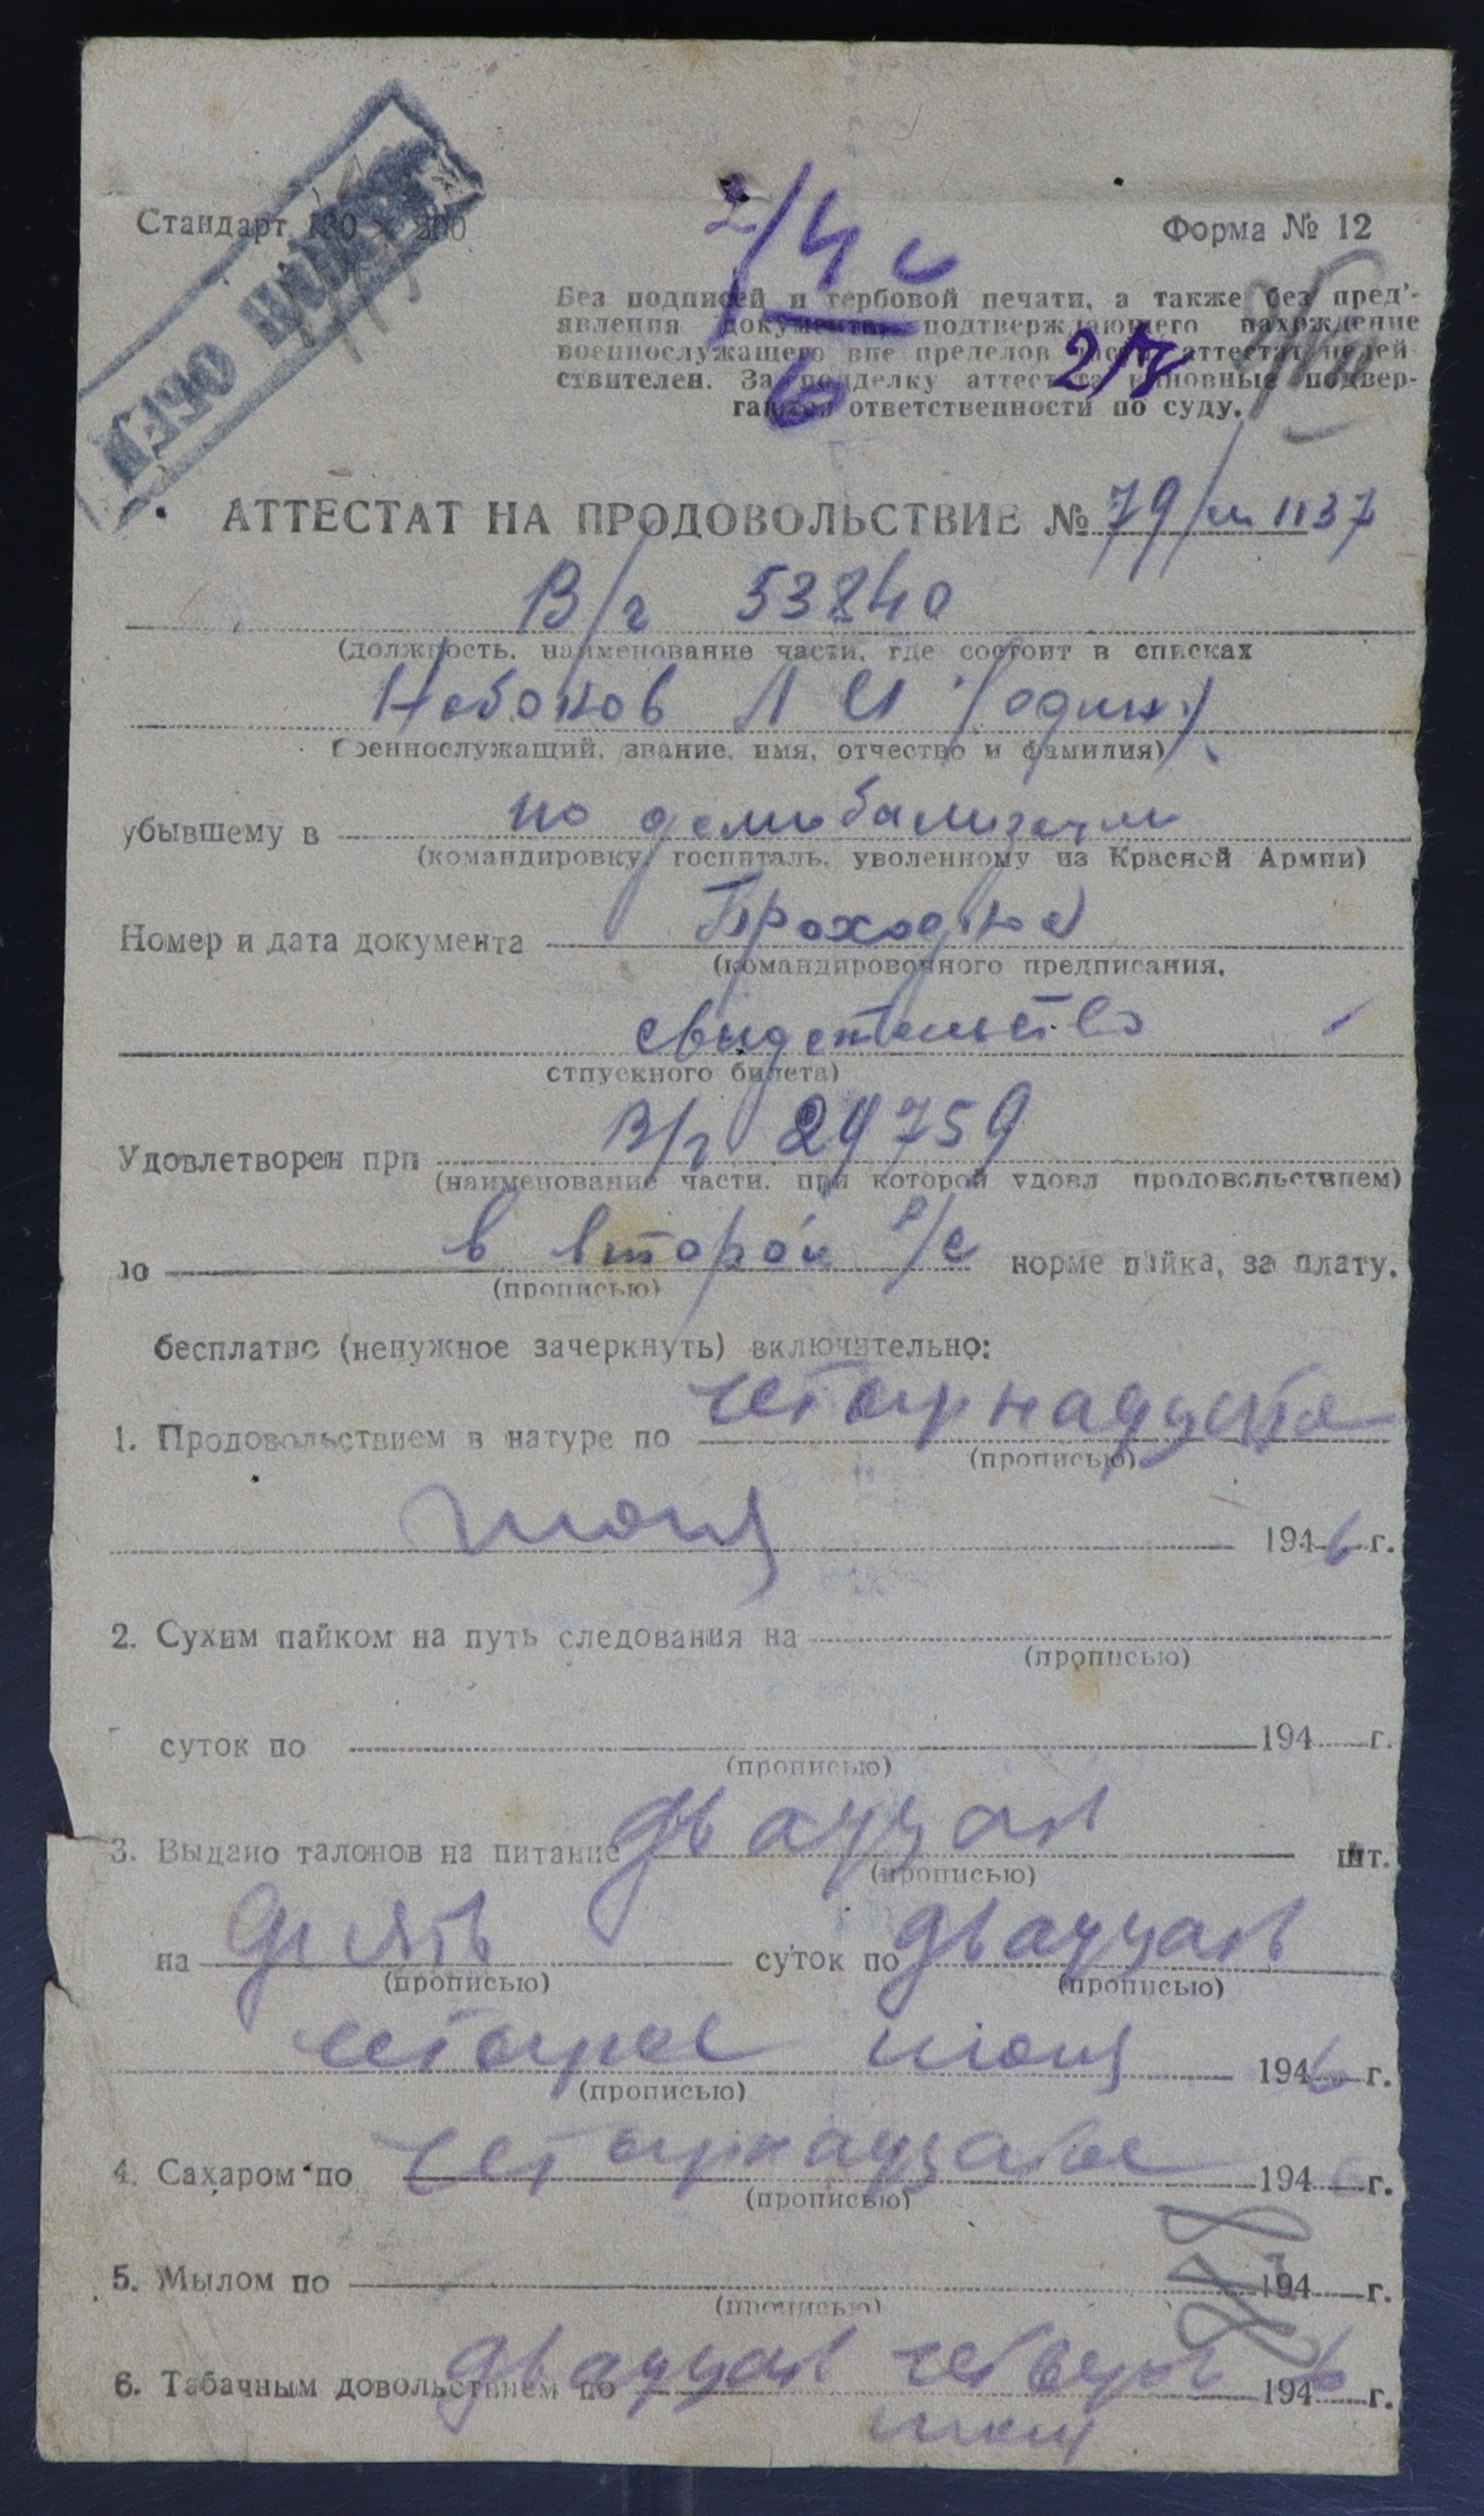 Стандарт
Форма № 12
2/4
6
2/7
Без подписей и гербовой печати, а также без пред'-
явления документа, подтверждающего нахождение
военнослужащего вне пределов части, аттестат недей
ствителен. За подделку аттестата виновные подвер-
гаются ответственности по суду.
АТТЕСТАТ НА ПРОДОВОЛЬСТВИЕ № 79/ 1137
В/ч 53240
(должность, наименование части, где состоит в списках
Набоков Л И (один)
(военнослужащий, звание, имя, отчество и фамилия)
убывшему в по
(командировку, госпиталь, уволенному из Красной Армии)
Номер и дата документа Проходное
(командировочного предписания,
свидетельство
отпускного билета)
Удовлетворен при В/ч 29759
(наименование части, при которой удовл продовольствием)
по в второй р/с норме пайка, за плату,
(прописью)
бесплатно (ненужное зачеркнуть) включительно:
1. Продовольствием в натуре по четырнадцатое
(прописью)
июня 1946 г.
2. Сухим пайком на путь следования на
(прописью)
суток по 194 г.
(прописью)
3. Выдано талонов на питание двадцать шт.
(прописью)
на десять суток по двадцать
(прописью) (прописью)
четырое июня 1946 г.
(прописью)
4. Сахаром по четырнадцатое 1946 г.
(прописью)
5. Мылом по 194 г.
(прописью)
6. Табачным довольствием по двадцать 1946 г.
июня